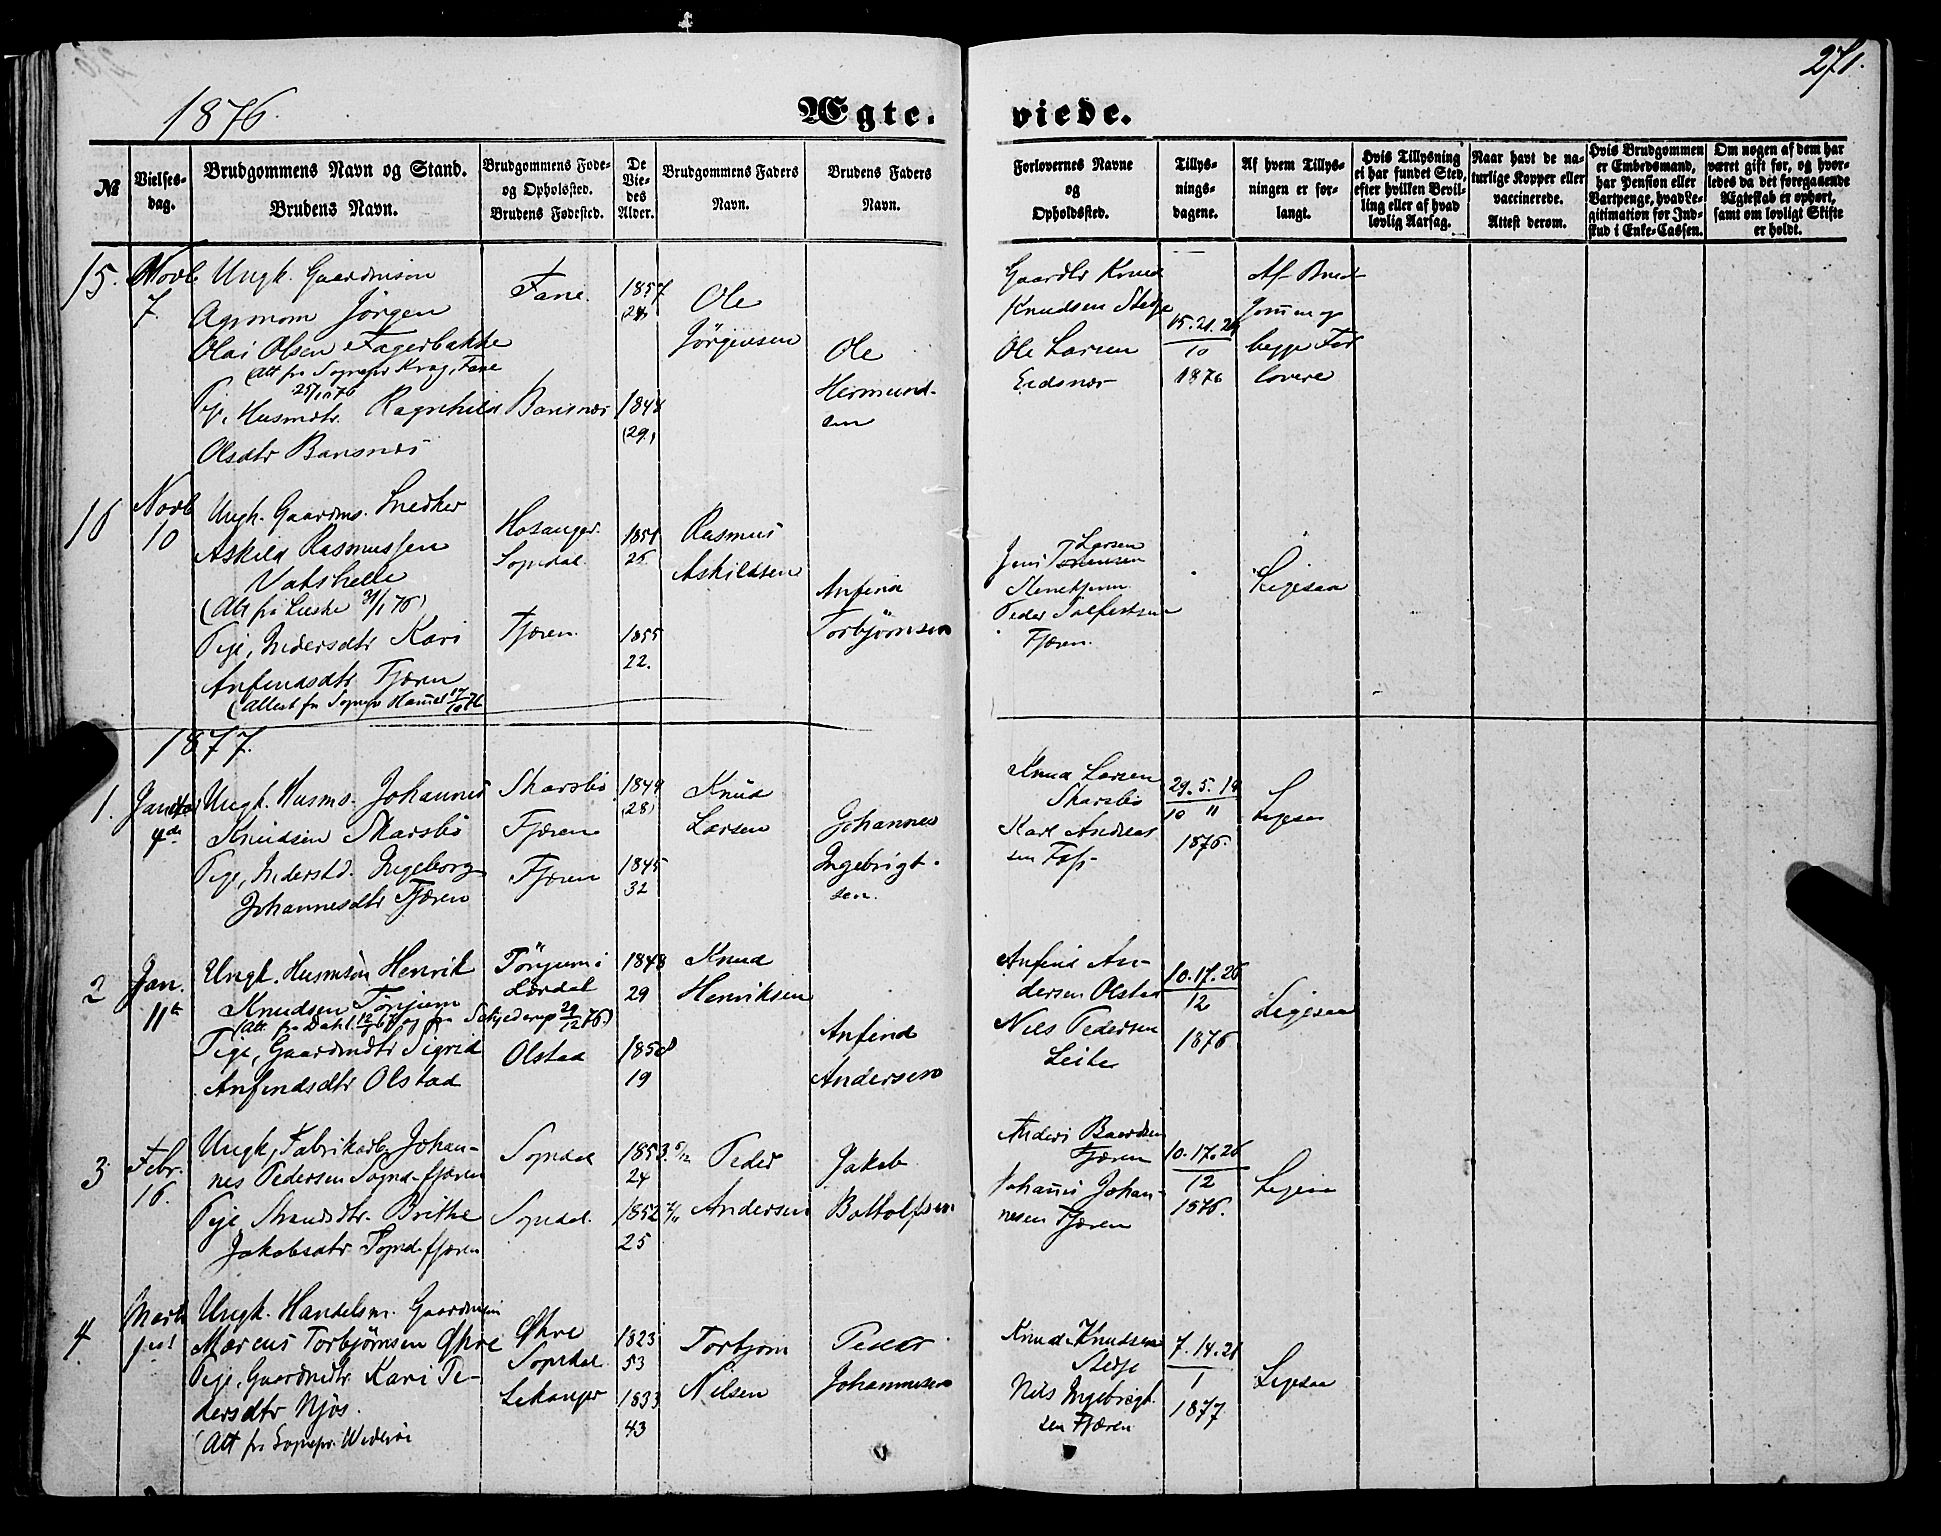 271.
1876.
Ægte.
viede.
№
Vielses-
dag.
Brudgommens Navn og Stand.
Brudens Navn.
Brudgommens Føde-
og Opholdsted.
Brudens Fødested.
De
Vie-
des
Alder.
Brudgommens Faders
Navn.
Brudens Faders
Navn.
Forlovernes Navne
og
Opholdssted.
Tillys-
nings-
dagene.
Af hvem Tillys-
ningen er for-
langt.
Hvis Tillysning
ei har fundet Sted,
efter hvilken Bevil-
ling eller af hvad
lovlig Aarsag.
Naar havt de na-
turlige Kopper eller
vaccinerede.
Attest derom.
Hvis Brudgommen
er Embedsmand,
har Pension eller
Vartpenge, hvad Le-
gitimation for Ind-
skud i Enke-Cassen.
Om nogen af dem har
været gift før, og hvor-
ledes da det foregaaende
Ægteskab er ophørt,
samt om lovligt Skifte
er holdt.
15.
Novb
7.
Ungk. Gaardmsøn
Agronom Jörgen
Olai Olsen Fagerbakke
(Att fra Sognepr Krag, Fane
25/10 76
Pige, Husmdtr. Ragnhild
Olsdtr Barsnes
Fane.
Barsnes
1857
1848
(29.)
Ole
Jörgensen
Ole
Hermund-
sen
Gaardbr Knud
Knudsen Stedje
Ole Larsen
Eidsnær
15.21.
10
1876
Af Brud-
gom og
begge For
lovere
16
Novb
10
Ungk. Gaardms. Snedker
Askild Rasmussen
Vatshelle
(Att fra 31/1 76)
Pige, Inderstdtr Kari
Anfindsdtr Fjæren
(Attest fra Sognepr 17/10 76
Hosanger.
Sogndal.
Fjæren.
1851
25.
1855
22.
Rasmus
Askildsen
Anfind
Torbjørnsen
Jens Larsen
Stenehjem
Peder
Fjæren.
Ligesaa
1877.
1.
Januar
4de
Ungk. Husms. Johannes
Knudsen Skarsbö
Pige, Inderstd. Ingeborg
Johannesdtr Fjæren
Skarsbö
Fjæren
Fjæren
1849
(28)
1845
32
Knud
Larsen
Johannes
Ingebrigt-
sen.
Knud Larsen
Skarsbö
Karl Andreas
sen Foss
29.5.19
10 11
1876.
Ligesaa
2
Jan.
11te
Ungk. Husmsön Henrik
Knudsen Tönjum
(Att fra Dahl 12/ 67 og fra Schjederup 29/12 76)
Pige, Gaardmdtr Sigrid
Anfindsdtr Olstad
Tönjum i
Lærdal
Olstad
1848
29
1858
19
Knud
Henriksen
Anfind
Andersen
Anfind An-
dersen Olstad
Nils Pedersen
Leite
10.17.26
12
1876
Ligesaa
3
Febr.
16.
Ungk, Fabrikarb. Johan-
nes Pedersen Sogndalsfjæren
Pige, Strandsdtr. Brithe
Jakobsdtr. Sogndalsfjæren
Sogndal
Sogndal.
1853 5/12
24
1852
25
Peder
Andersen
Jakob
Bottolfsen
Anders Baardsen
Fjæren
Johannes Johan-
nesen Fjæren
10.17.26
12
1876.
Ligesaa
4
Marts
Ungk. Handelsm. Gaardmsön
Marcus Torbjørnsen Øhre
Pige, Gaardmdtr. Kari Pe-
dersdtr Njös.
(Att fra Sognepr.
Øhre
Sogndal
Lekanger
1823
53
1833
43
Torbjørn
Nilsen
Peder
Johannesen
Knud Knudsen
Stedje
Nils Ingebrigt-
sen Fjæren
7.14.21
1
1877
Ligesaa